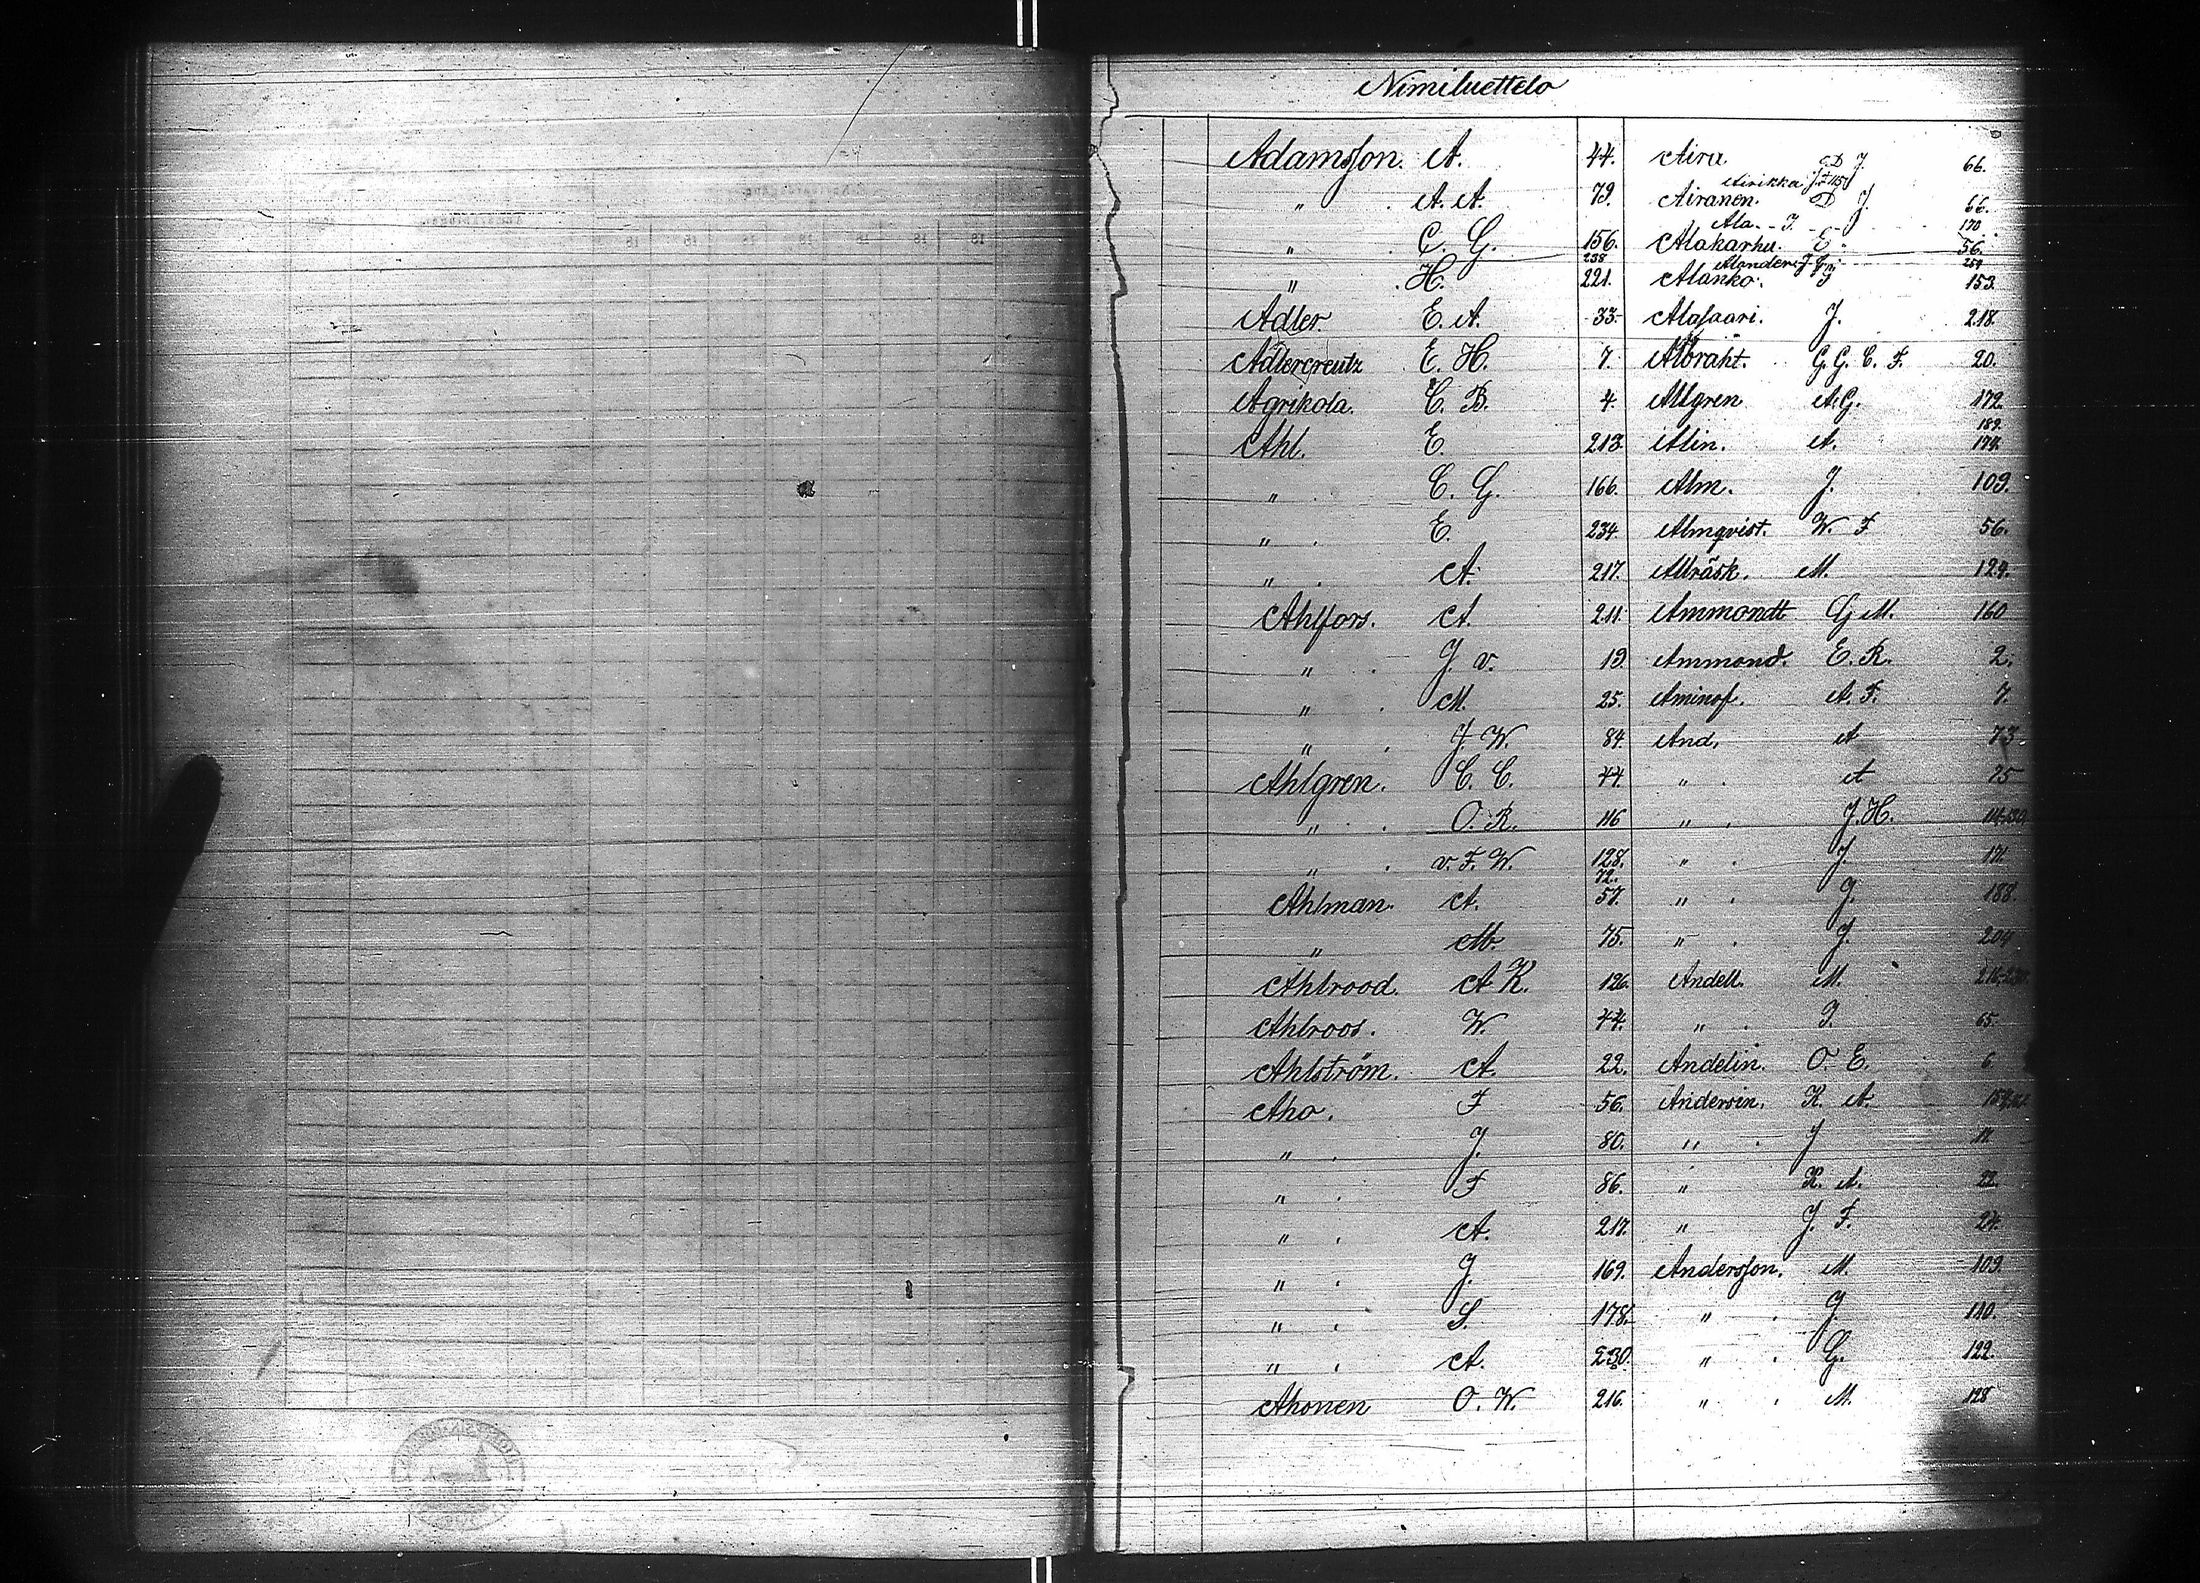 Nimiluettelo
Adamsson. A. 44.
" . A. A. 79.
" . C. G. 156. 238
" . H. 221.
Adler. E. A. 33.
Adlercreutz E. H. 7.
Agrikola. C. B. 4.
Ahl. E. 213.
" . C. G. 166.
" . E. 234.
" . A. 217.
Ahlfors. A. 211.
" . J. v. 19.
" . M. 25.
" . J. W. 84.
Ahlgren. C. C. 44.
" . O. R. 116
" . v. F. W. 128. 72.
Ahlman. A. 57.
" M. 75.
Ahlrood. A K. 126.
Ahlroos. W. 44.
Ahlström. A. 22.
Aho. F 56.
" . J. 80.
" . F 86.
" . A. 217.
" . J. 169.
" . S. 178.
" . A. 230.
Ahonen O. W. 216.
Aira D J. 66.
Airikka J. F 115
Airanen. D J. 66.
Ala - - J. - - 170
Alakarhu. E. 56.
Alander J. G. 254
Alanko. J 153.
Alasaari. J. 218.
Albraht. G. G. C. F. 20.
Allgren A. G. 172.
189.
Alin. A. 174.
Alm. J. 109.
Almqvist. W. F 56.
Alträsk. M. 124.
Ammondt G. M. 160
Ammond. E. R. 2.
Aminof. A. F. 7.
And. A 73.
" . A 25
" . J. H.
" . J. 171.
" . J. 188.
" . J. 204
Andell. M.
" . J. 65.
Andelin. O. E. 6
Andersin. K. A.
" . J 11.
" K. A. 22
" J. F. 24.
Andersson. M. 109.
" . J. 110.
" . G. 122.
" . M. 128